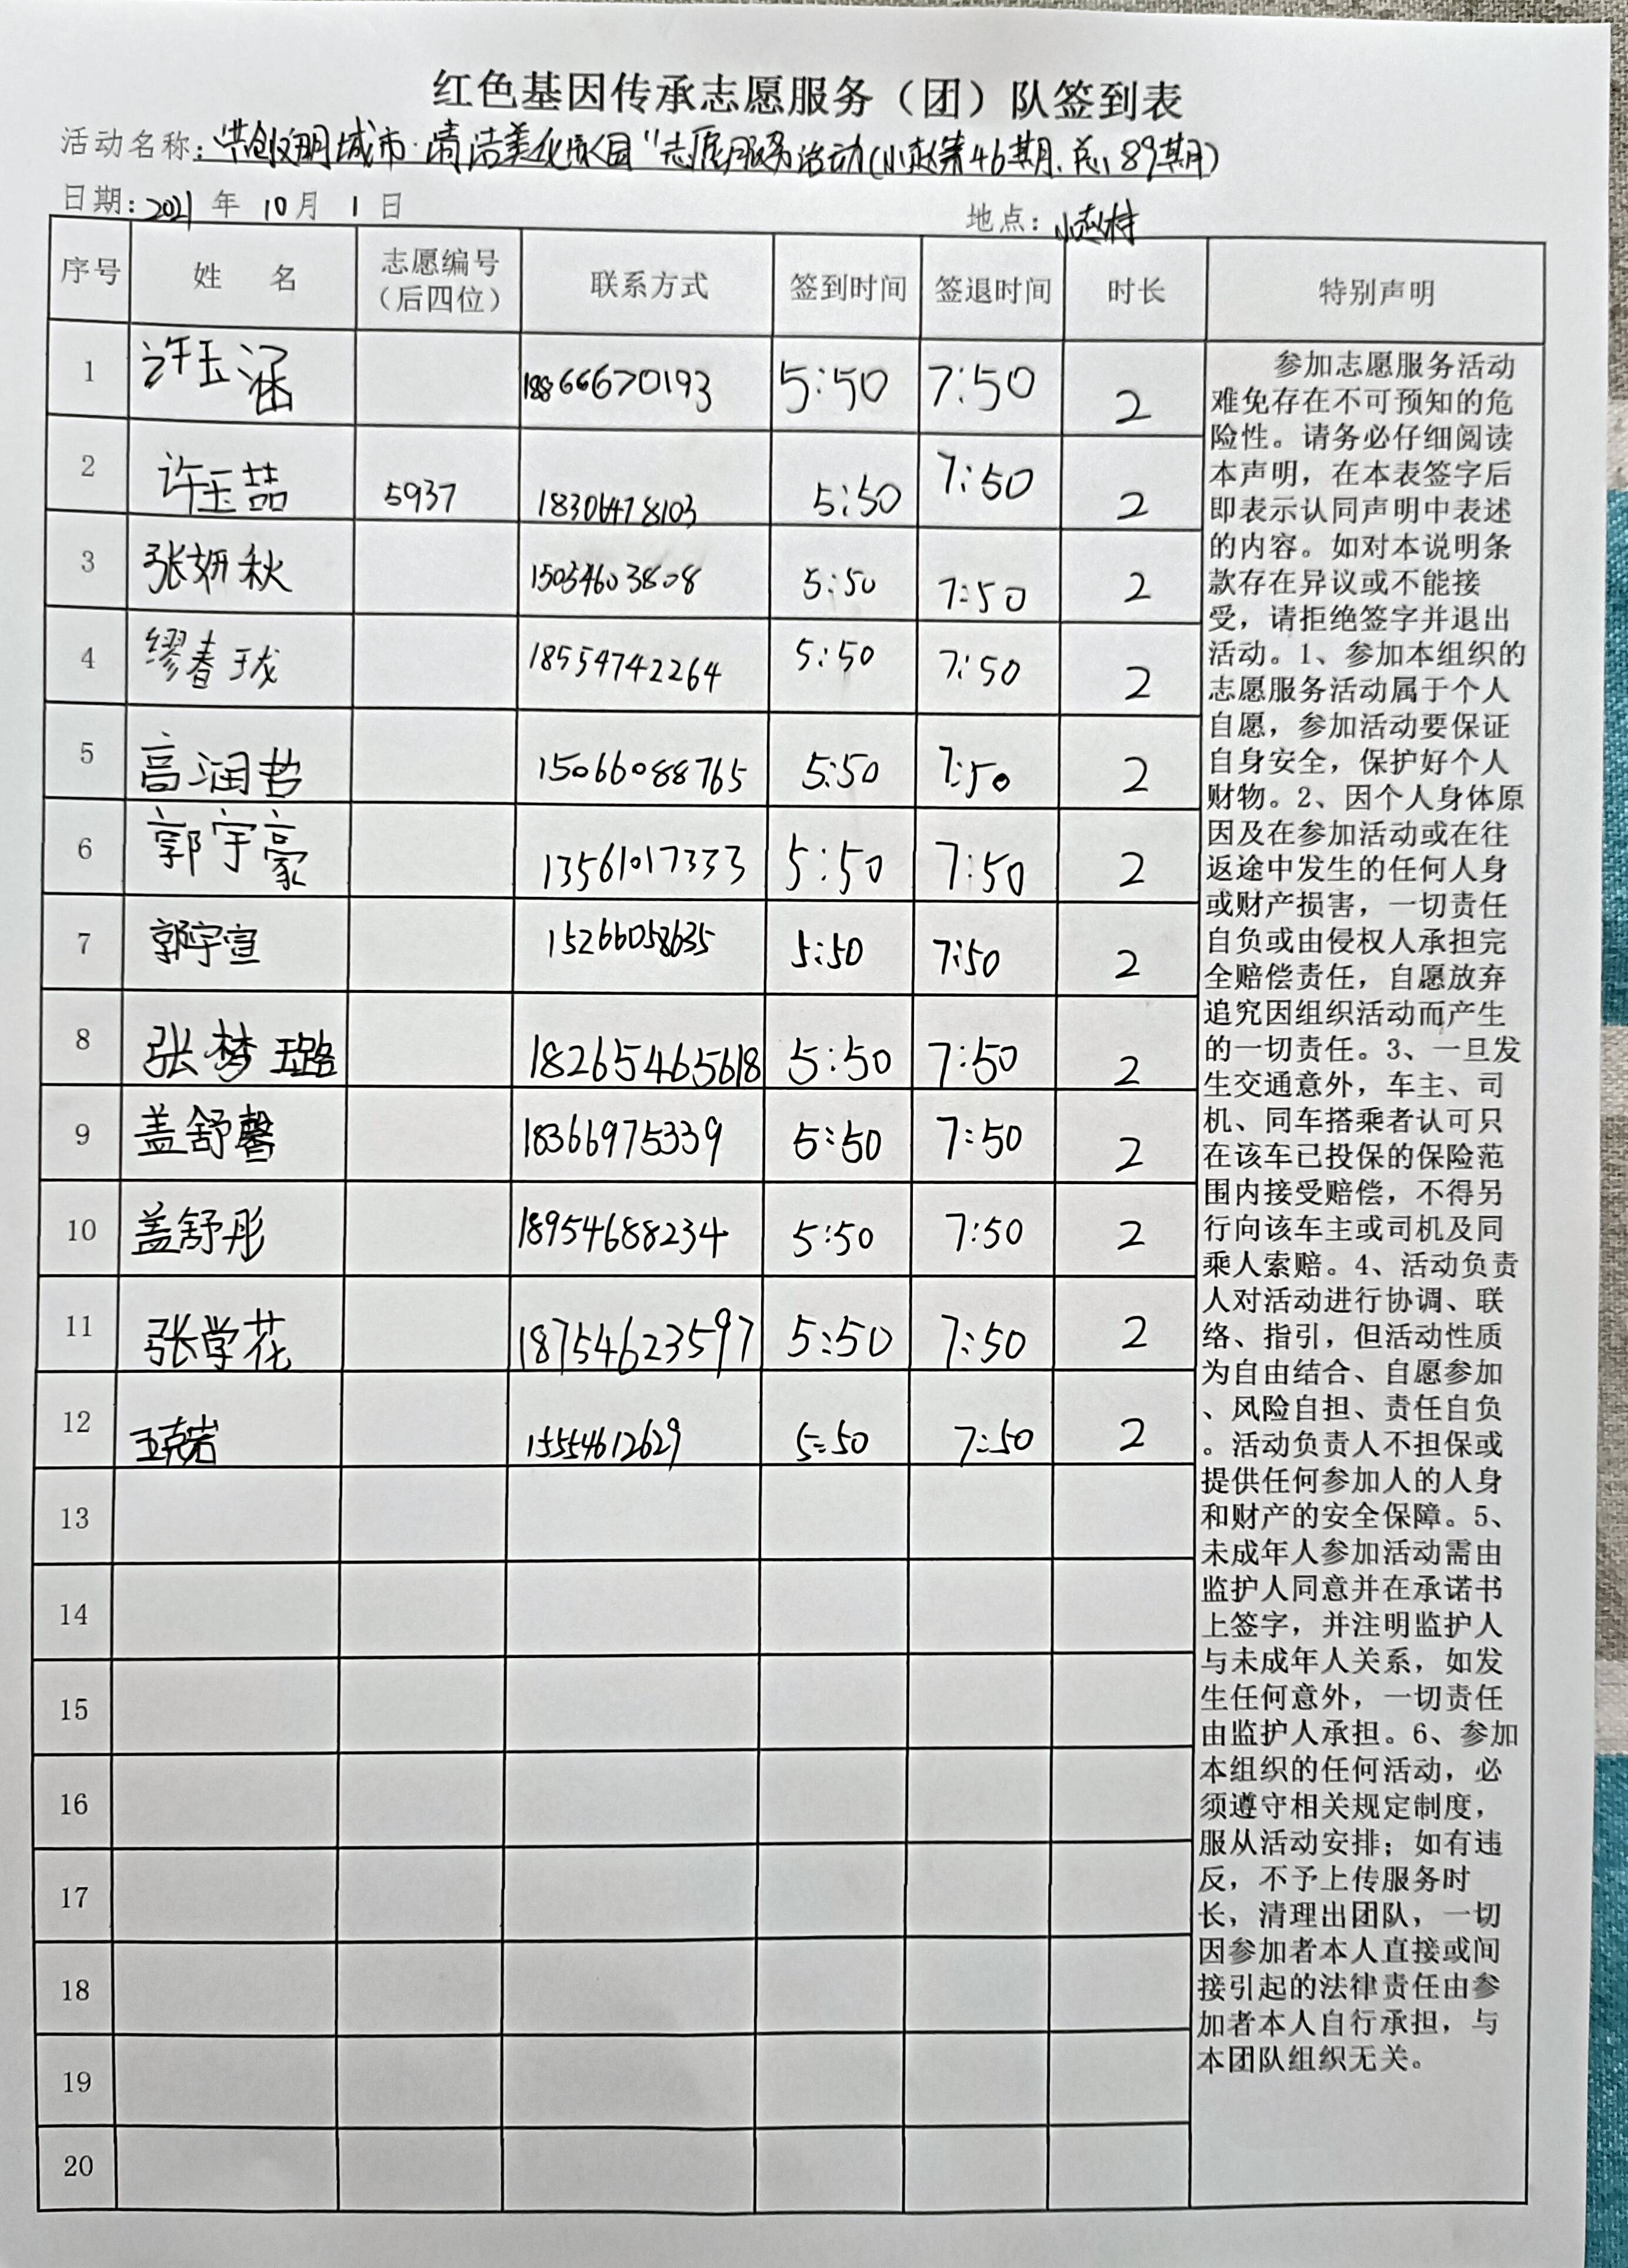 红色基因传承志愿服务（团）队签到表
活动名称：“共创文明城市·清洁美化家园”志愿服务活动(小赵第46期.总189期)
日期：2021 年 10 月 1 日 地点：小赵村
序号 姓 名 志愿编号（后四位） 联系方式 签到时间 签退时间 时长 特别声明
1 许玉涵 18866670193 5:50 7:50 2
2 许玉喆 5937 18306478103 5:50 7:50 2
3 张妍秋 15034603808 5:50 7:50 2
4 缪春珑 18554742264 5:50 7:50 2
5 高润哲 15066088765 5:50 7:50 2
6 郭宇豪 13561017333 5:50 7:50 2
7 郭宇宣 15266058635 5:50 7:50 2
8 张梦璐 18265465618 5:50 7:50 2
9 盖舒馨 18366975339 5:50 7:50 2
10 盖舒彤 18954688234 5:50 7:50 2
11 张学花 18754623597 5:50 7:50 2
12 王克岩 15554612629 5:50 7:50 2
13
14
15
16
17
18
19
20
参加志愿服务活动
难免存在不可预知的危
险性。请务必仔细阅读
本声明，在本表签字后
即表示认同声明中表述
的内容。如对本说明条
款存在异议或不能接
受，请拒绝签字并退出
活动。1、参加本组织的
志愿服务活动属于个人
自愿，参加活动要保证
自身安全，保护好个人
财物。2、因个人身体原
因及在参加活动或在往
返途中发生的任何人身
或财产损害，一切责任
自负或由侵权人承担完
全赔偿责任，自愿放弃
追究因组织活动而产生
的一切责任。3、一旦发
生交通意外，车主、司
机、同车搭乘者认可只
在该车已投保的保险范
围内接受赔偿，不得另
行向该车主或司机及同
乘人索赔。4、活动负责
人对活动进行协调、联
络、指引，但活动性质
为自由结合、自愿参加
、风险自担、责任自负
。活动负责人不担保或
提供任何参加人的人身
和财产的安全保障。5、
未成年人参加活动需由
监护人同意并在承诺书
上签字，并注明监护人
与未成年人关系，如发
生任何意外，一切责任
由监护人承担。6、参加
本组织的任何活动，必
须遵守相关规定制度，
服从活动安排；如有违
反，不予上传服务时
长，清理出团队，一切
因参加者本人直接或间
接引起的法律责任由参
加者本人自行承担，与
本团队组织无关。